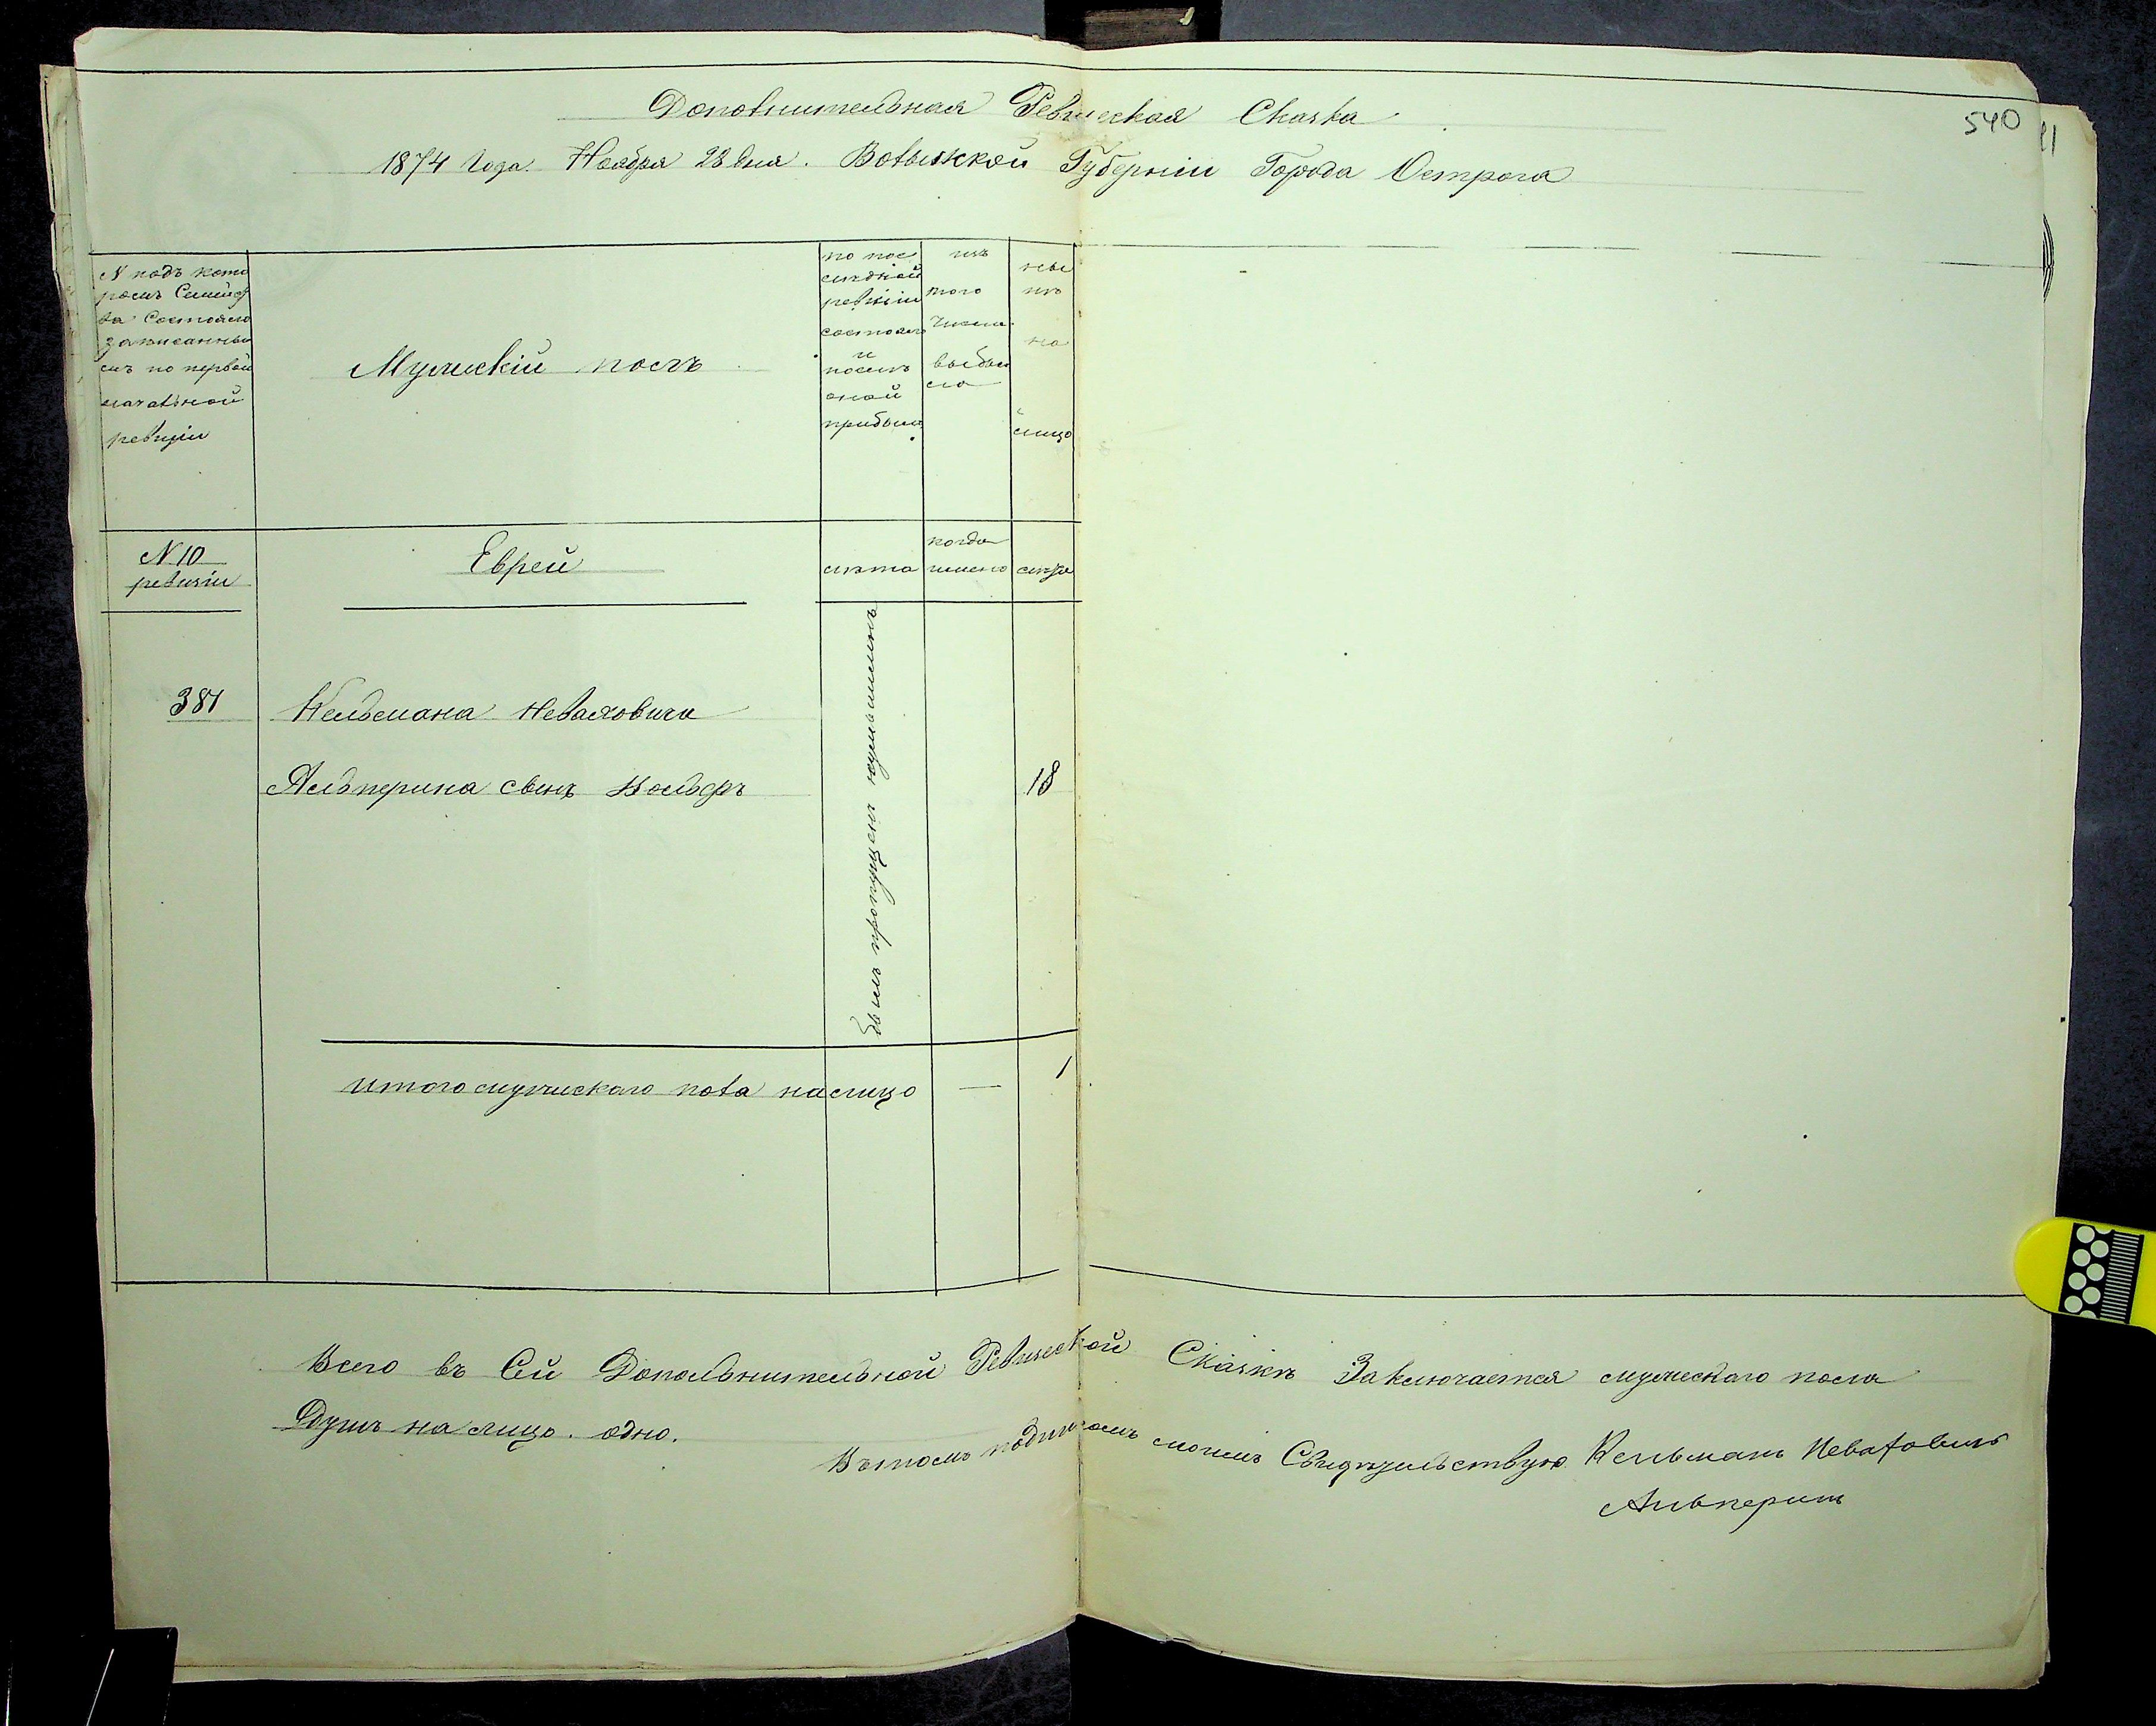 Дополнительная Ревизская Сказка
540
1874 Года. Ноября 28 дня. Волынской Губернiи Города Острога
N подъ кото
рымъ Семейс
ва Состояло
записанны
мъ по первон
начальной
ревизiи
Мужескiй полъ
по пос
лѣдней
ревизiи
состояло
и
послѣ
оной
прибыло
изъ
того
Числа
выбы
ло
ны
нѣ
на
лицо
N 10
ревизiи
Еврей
лѣта
когда
имено
лѣта
былъ пропущенъ
381
Кельмана Неваховича
Альперина сынъ Вольфъ
18
итого мужескаго пола налицо — 1
Всего въ Сей Дополънительной Ревизской Сказкѣ Заключается мужескаго пола
Душъ на лицо. одно.
Вътомъ подписомъ моимъ Свидѣтельствую Кельманъ Неваховичъ
Альперинъ